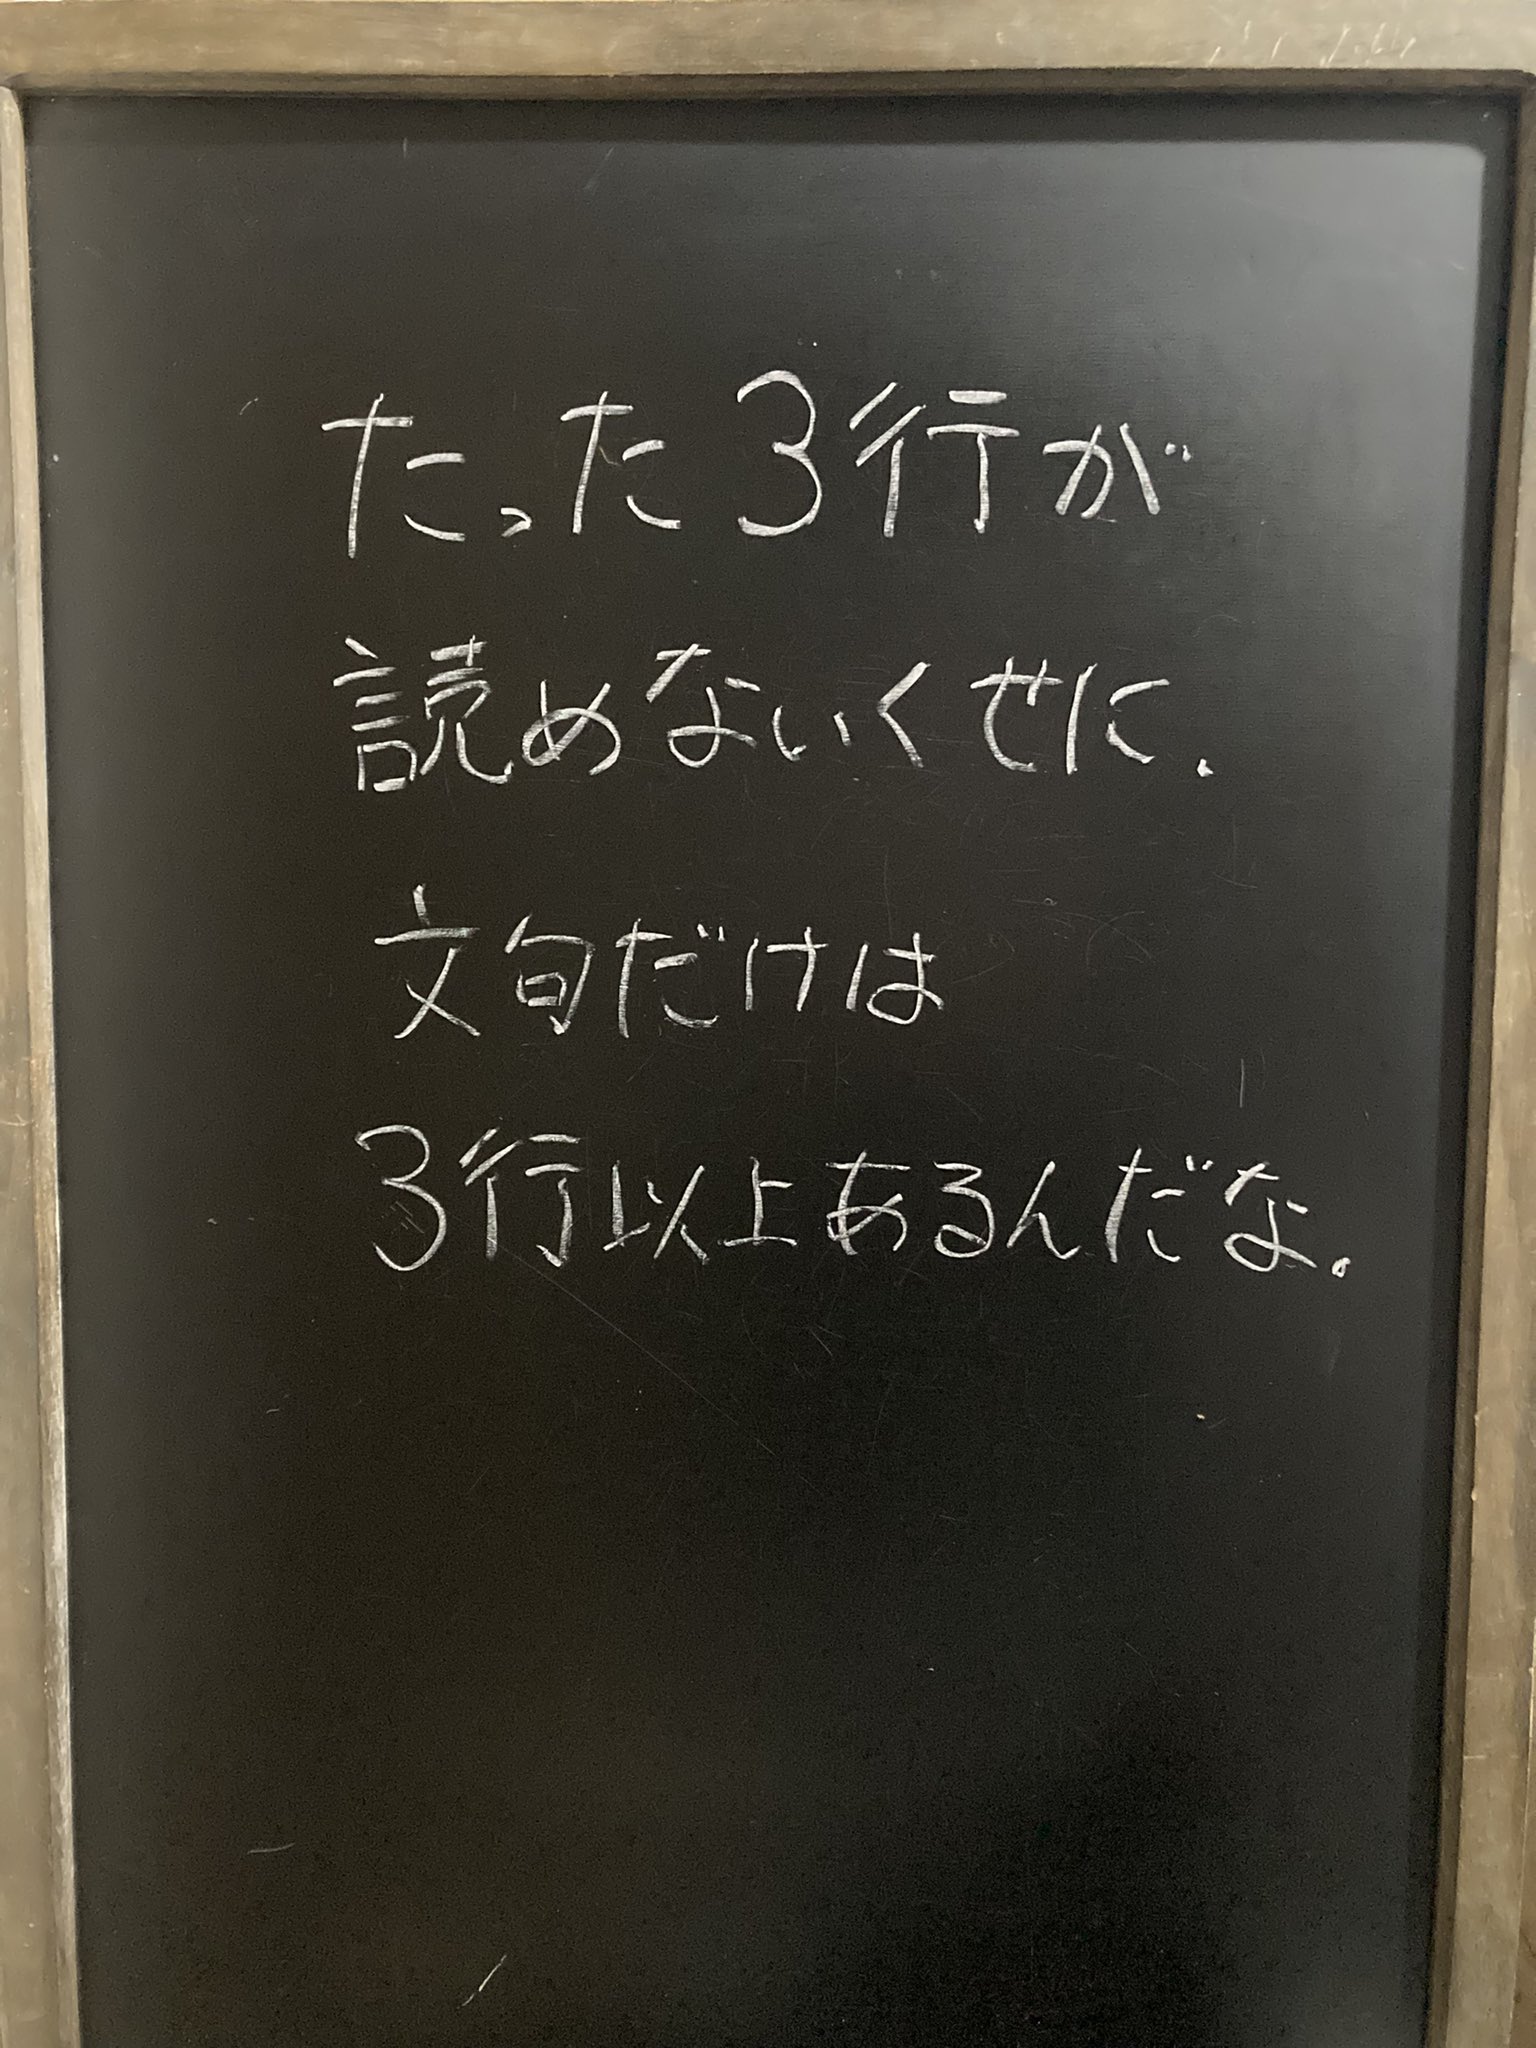 たった3行が
読めないくせに、
文句だけは
3行以上あるんだな。